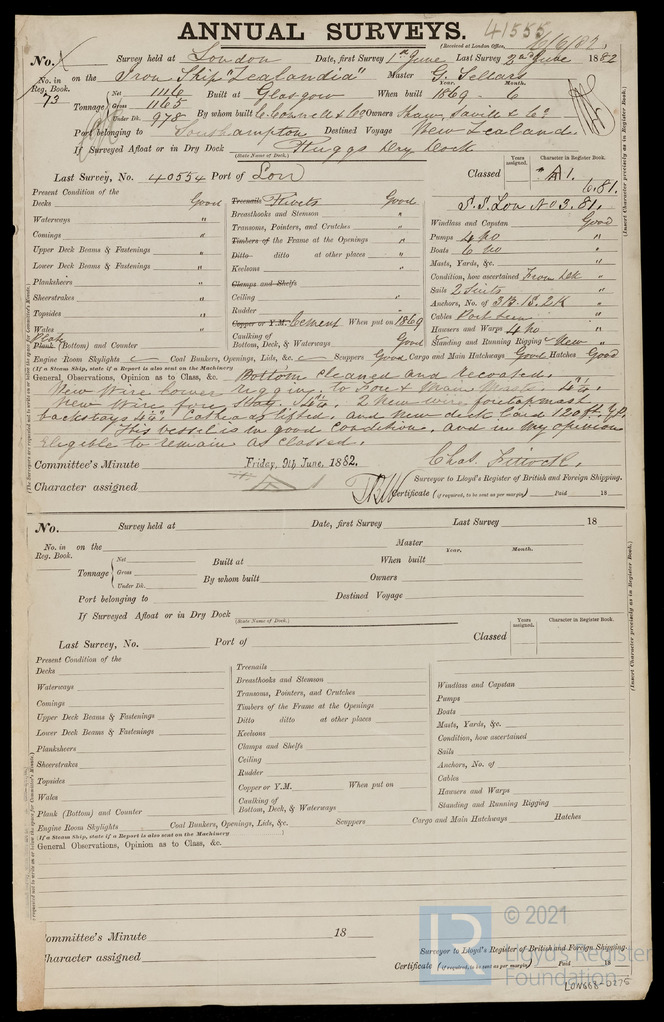 ANNUAL SURVEYS. 41555
(Received at London Office, 2/6/82.
No. Survey held at London Date, first Survey 1st June Last Survey 2nd June 1882
No. in Reg. Book. 73 on the Iron Ship "Zealandia" Master G. Sellars
Tonnage Net 1116 Built at Glasgow When built Year. 1869 Month. 6
Gross 1165
Under Dk. 978 By whom built C. Connell & Co Owners Shaw, Savill & Co.
Port belonging to Southampton Destined Voyage New Zealand
If Surveyed Afloat or in Dry Dock Dry Dock
(State Name of Dock.)
Last Survey, No. 40554 Port of Lon Classed Years assigned. Character in Register Book.
A 1.
6.81.
S.S. Lon No 3.81.
(Insert Character precisely as in Register Book.)
Present Condition of the
Decks Good
Waterways "
Comings "
Upper Deck Beams & Fastenings "
Lower Deck Beams & Fastenings "
Planksheers "
Sheerstrakes "
Topsides "
Wales "
Plate
Plank (Bottom) and Counter "
Treenails Rivets Good
Breasthooks and Stemson "
Transoms, Pointers, and Crutches "
Timbers of the Frame at the Openings "
Ditto ditto at other places "
Keelsons "
Clamps and Shelfs
Ceiling "
Rudder "
Copper or Y.M. Cement When put on 1869
Caulking of Bottom, Deck, & Waterways Good
Windlass and Capstan Good
Pumps 4 No "
Boats 6 No "
Masts, Yards, &c. "
Condition, how ascertained From Dk "
Sails 2 Suits "
Anchors, No. of 3B. 1S. 2K "
Cables "
Hawsers and Warps 4 No "
Standing and Running Rigging New "
Engine Room Skylights Coal Bunkers, Openings, Lids, &c. Scuppers Good Cargo and Main Hatchways Good Hatches Good
(If a Steam Ship, state if a Report is also sent on the Machinery
General Observations, Opinion as to Class, &c. Bottom cleaned and recoated.
New Wire lower rigging to Fore & Main Masts. 4½"
New Wire fore Stay. 4½". 2 New wire foretopmast
backstays and New deck laid
This vessel is in good condition, and in my opinion
eligible to remain as classed.
Committee's Minute Friday, 9th June, 1882. Chas.
Character assigned A 1 Surveyor to Lloyd's Register of British and Foreign Shipping.
Certificate (if required, to be sent as per margin) Paid 18
No. Survey held at Date, first Survey Last Survey 18
No. in Reg. Book. on the Master
Tonnage Net Built at When built Year. Month.
Gross
Under Dk. By whom built Owners
Port belonging to Destined Voyage
If Surveyed Afloat or in Dry Dock
(State Name of Dock.)
Last Survey, No. Port of Classed Years assigned. Character in Register Book.
(Insert Character precisely as in Register Book.)
Present Condition of the
Decks
Waterways
Comings
Upper Deck Beams & Fastenings
Lower Deck Beams & Fastenings
Planksheers
Sheerstrakes
Topsides
Wales
Plank (Bottom) and Counter
Treenails
Breasthooks and Stemson
Transoms, Pointers, and Crutches
Timbers of the Frame at the Openings
Ditto ditto at other places
Keelsons
Clamps and Shelfs
Ceiling
Rudder
Copper or Y.M. When put on
Caulking of Bottom, Deck, & Waterways
Windlass and Capstan
Pumps
Boats
Masts, Yards, &c.
Condition, how ascertained
Sails
Anchors, No. of
Cables
Hawsers and Warps
Standing and Running Rigging
Engine Room Skylights Coal Bunkers, Openings, Lids, &c. Scuppers Cargo and Main Hatchways Hatches
(If a Steam Ship, state if a Report is also sent on the Machinery
General Observations, Opinion as to Class, &c.
ommittee's Minute 18
haracter assigned Surveyor to Lloyd's Register of British and Foreign Shipping.
Certificate (if required, to be sent as per margin) Paid 18
LR © 2021
Lloyd's Register
Foundation
LON668-0275